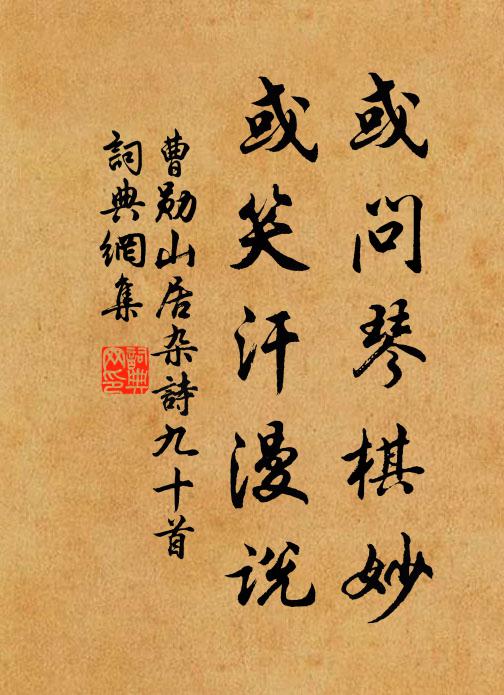 或问琴棋妙
或笑汗漫说
曹勋山居杂詩九十首
詞典網集
詞典網印